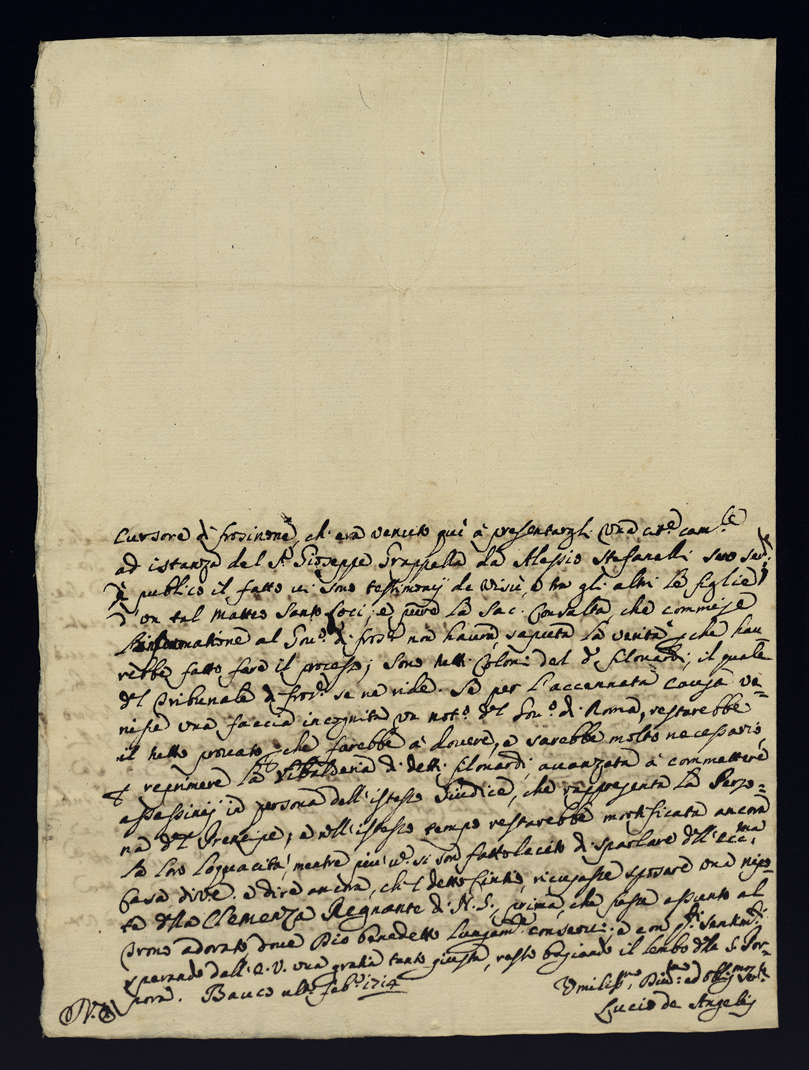 Cursore di frosinone, ch' era venuto qui à presentargli una cit.e cam.le
ad istanza del S.r Gioseppe Grappella da Alessio Stefanelli suo
È publico il fatto ui sono testimonij de visu, e tra gli altri le figlie
d'on tal Matteo Santo loci, e pure la Sac. Consulta che commise
l'informatione al Gou.e di fros.e non haurà saputa la verità, che hau-
rebbe fatto fare il processo; sono tutti Coloni del d.o filonardi, il quale
del Tribunale di fros.e se ne ride. Se per l'accennata causa ve-
nisse una faccia incognita un not.o del Gou.o di Roma, restarebbe
il tutto prouato, che sarebbe à douere, e sarebbe molto necessario
p reprimere la ribalderia di detti filonardi, auanzata à commettere
assassinij in persona dell' istesso Giudice, che rappresenta la Perso-
na del Prencipe; e nell' istesso tempo restarebbe mortificata ancora
la loro loquacità, mentre più u.e si son fatto lecito di sparlare dell' ecc.ma
Casa di V.E. e dire ancora, che l detto Cintio, ricusasse sposare una nipo-
te della Clemenza Regnante di N.S., prima, che fusse assunto al
Trono adorato doue Dio benedetto lungam.te conserui; e con
sperando dall' E.V. una gratia tanto giusta, resto bagiando il lembo della S. Por-
pora. Bauco ult.o feb.o 1714
Vmiliss.mo Diu.mo ed obblig.mo Ser.e
Lucio de Angelis